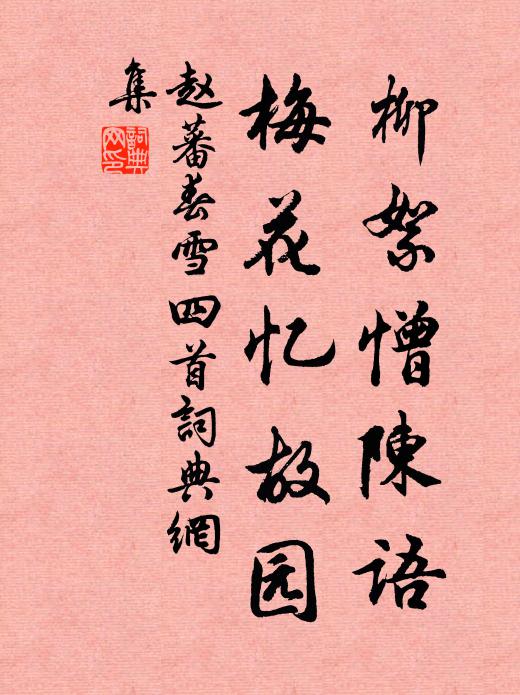 柳絮憎陳語
梅花忆故园
赵蕃春雪四首詞典網
集
詞典网印